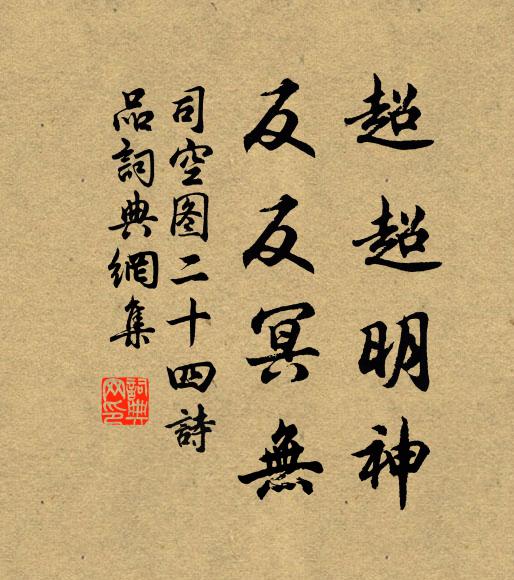 超超明神
反反冥無
司空图二十四詩
品詞典網集
詞典網印